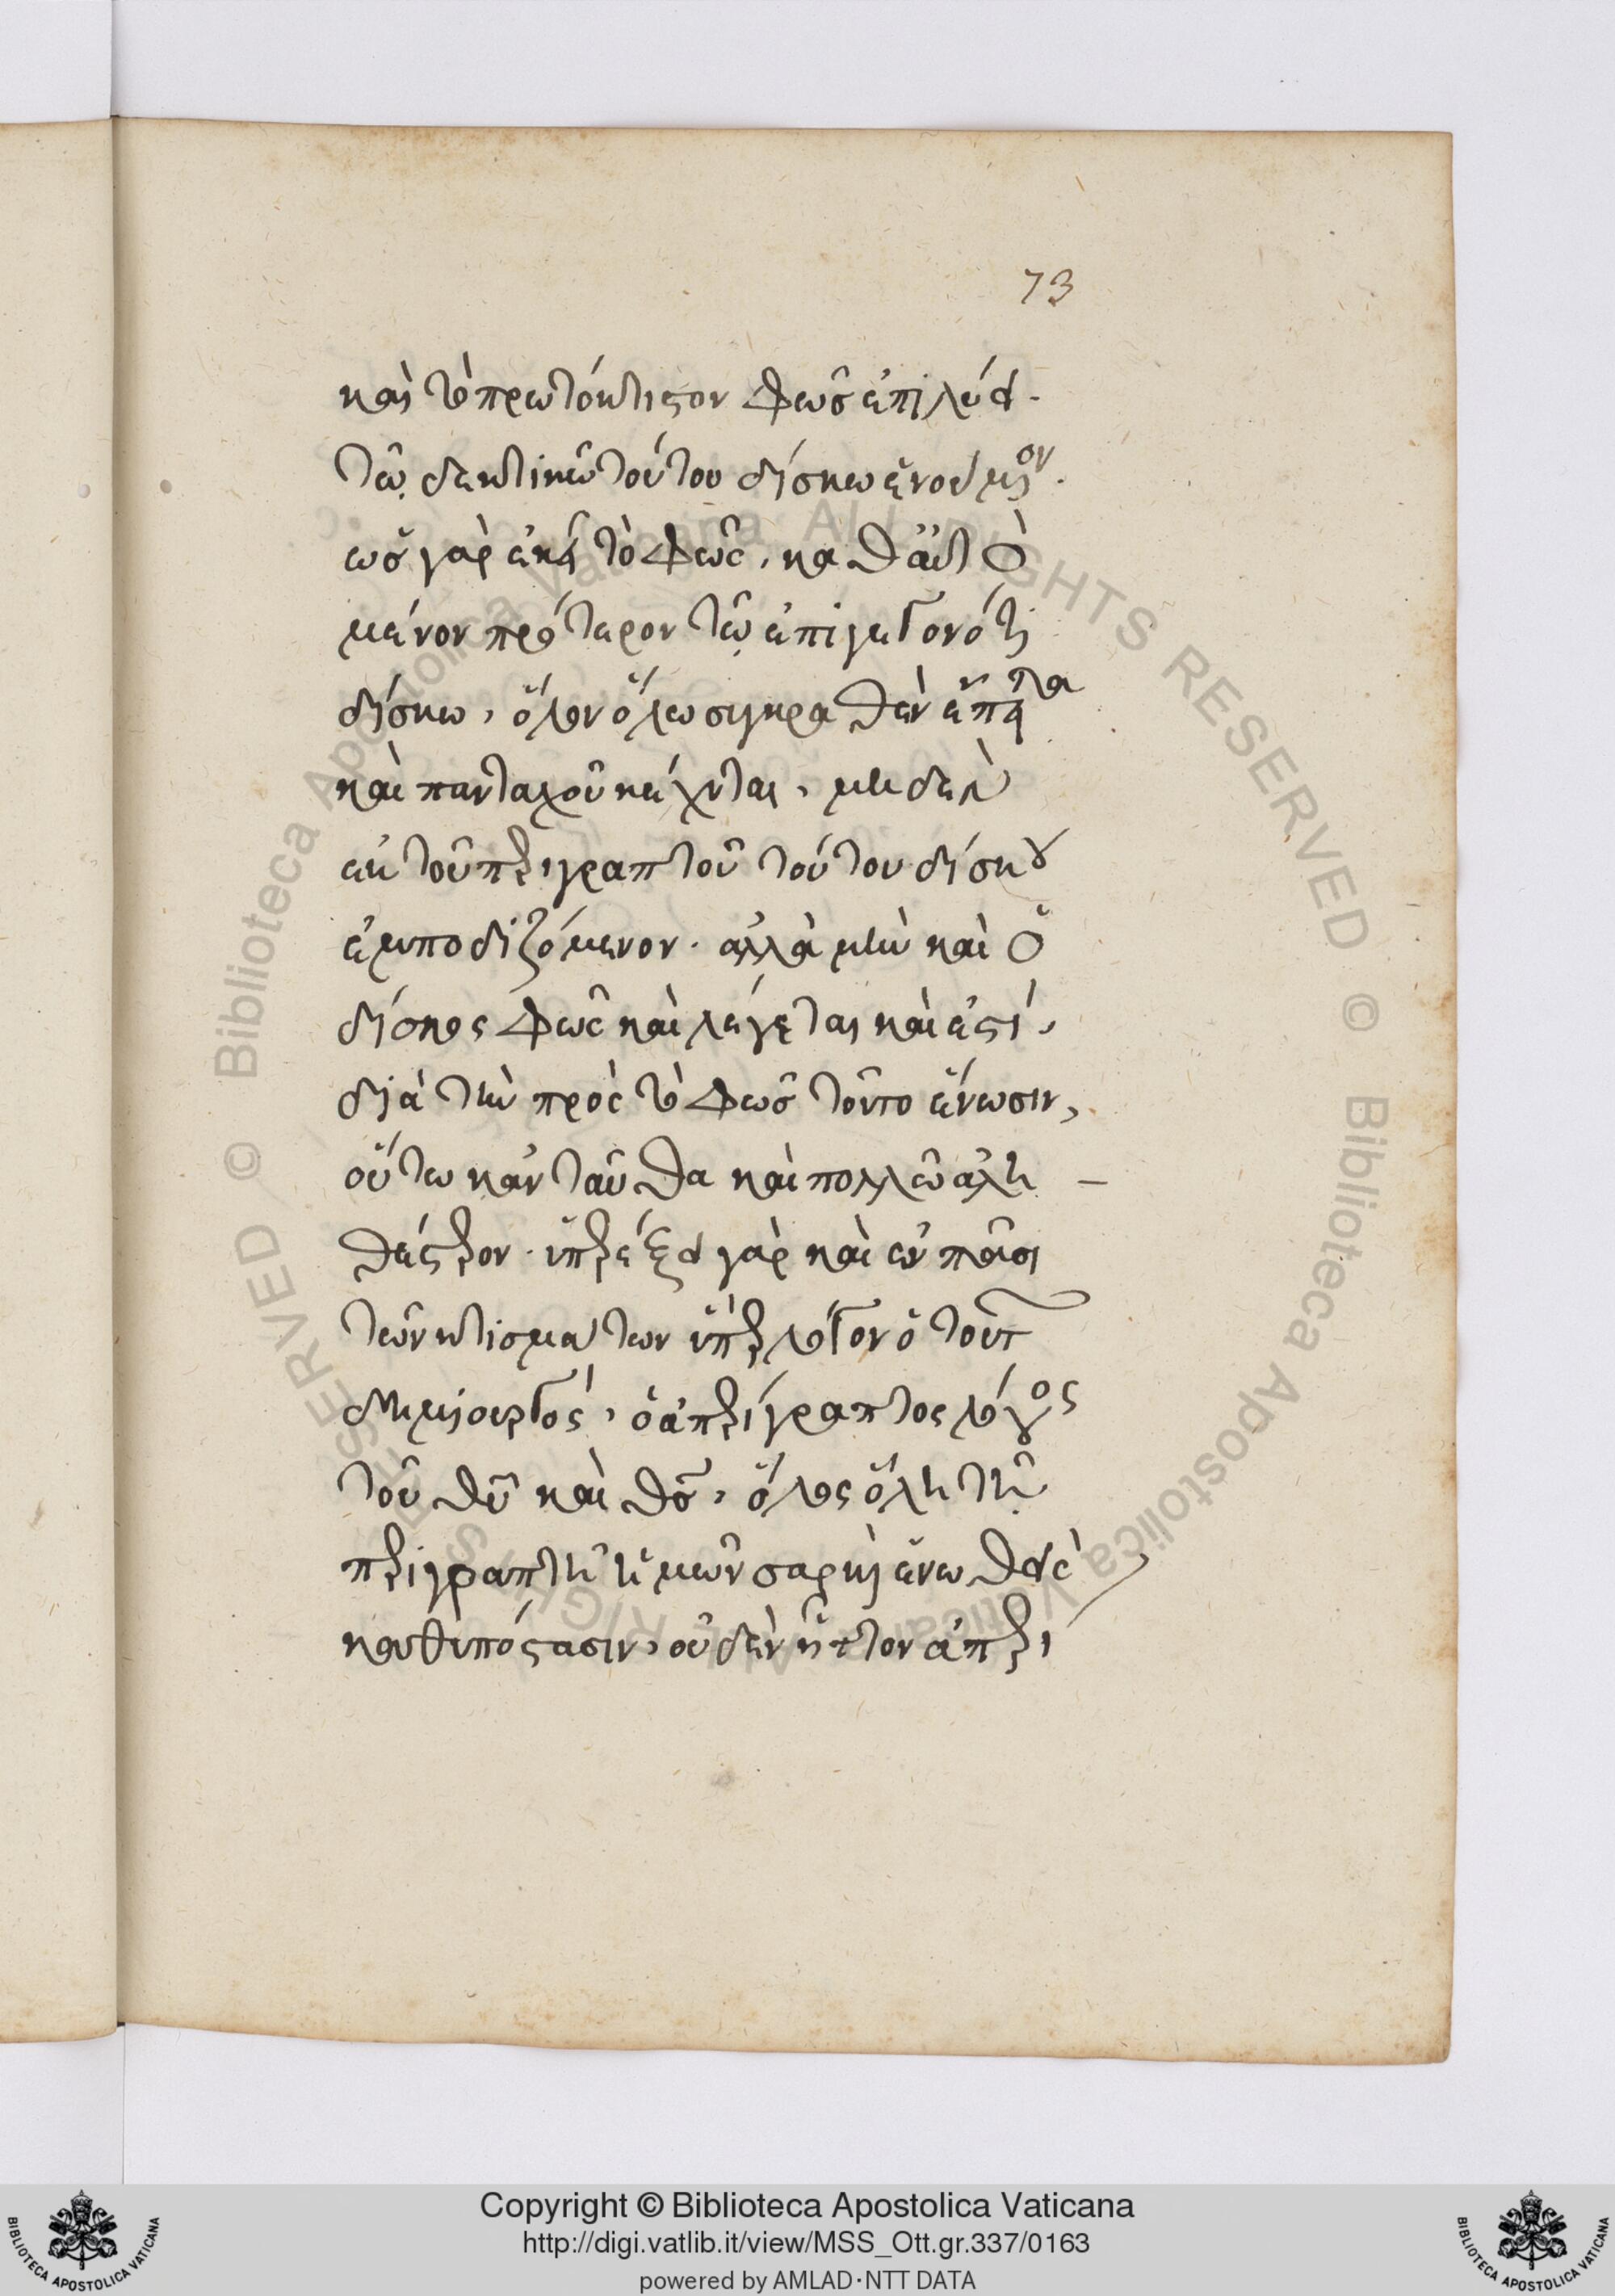 73
καὶ τὸ πρωτόκτιστον φῶς ἐπιλύει.
τῷ δεκτικῷ τούτου δίσκω ἑνούμενον.
ὡς γὰρ ἐκεῖ τὸ φῶς, καθ' ἑαυτὸ
μένον πρότερον τῷ ἐπιγεγονότι
δίσκω, ὅλον ὅλω συγκραθὲν ἔπειτα
καὶ πανταχοῦ κέχυται, μηδὲν
ἐκ τοῦ περιγραπτοῦ τούτου δίσκου
ἐμποδιζόμενον. ἀλλὰ μὴν καὶ ὁ
δίσκος φῶς καὶ λέγεται καὶ ἐστί,
διὰ τὴν πρὸς τὸ φῶς τοῦτο ἕνωσιν,
οὕτω κἀνταῦθα καὶ πολλῶ ἀλη-
θέστερον. ὑπερέξει γὰρ καὶ ἐν πᾶσι
τῶν κτισμάτων ὑπὲρ λόγον ὁ τούτων
δημιουργός, ὁ ἀπερίγραπτος λόγος
τοῦ θῦ καὶ θς, ὅλος ὅλη τῆ
περιγραπτῆ ἡμῶν σαρκὶ ἑνωθεὶς
καθυπόστασιν, οὐδὲν ἧττον ἀπερί
Copyright © Biblioteca Apostolica Vaticana
http://digi.vatlib.it/view/MSS_Ott.gr.337/0163
powered by AMLAD·NTT DATA
BIBLIOTECA APOSTOLICA VATICANA
BIBLIOTECA APOSTOLICA VATICANA
© Biblioteca Apostolica Vaticana ALL RIGHTS RESERVED © Biblioteca Apostolica Vaticana ALL RIGHTS RESERVED